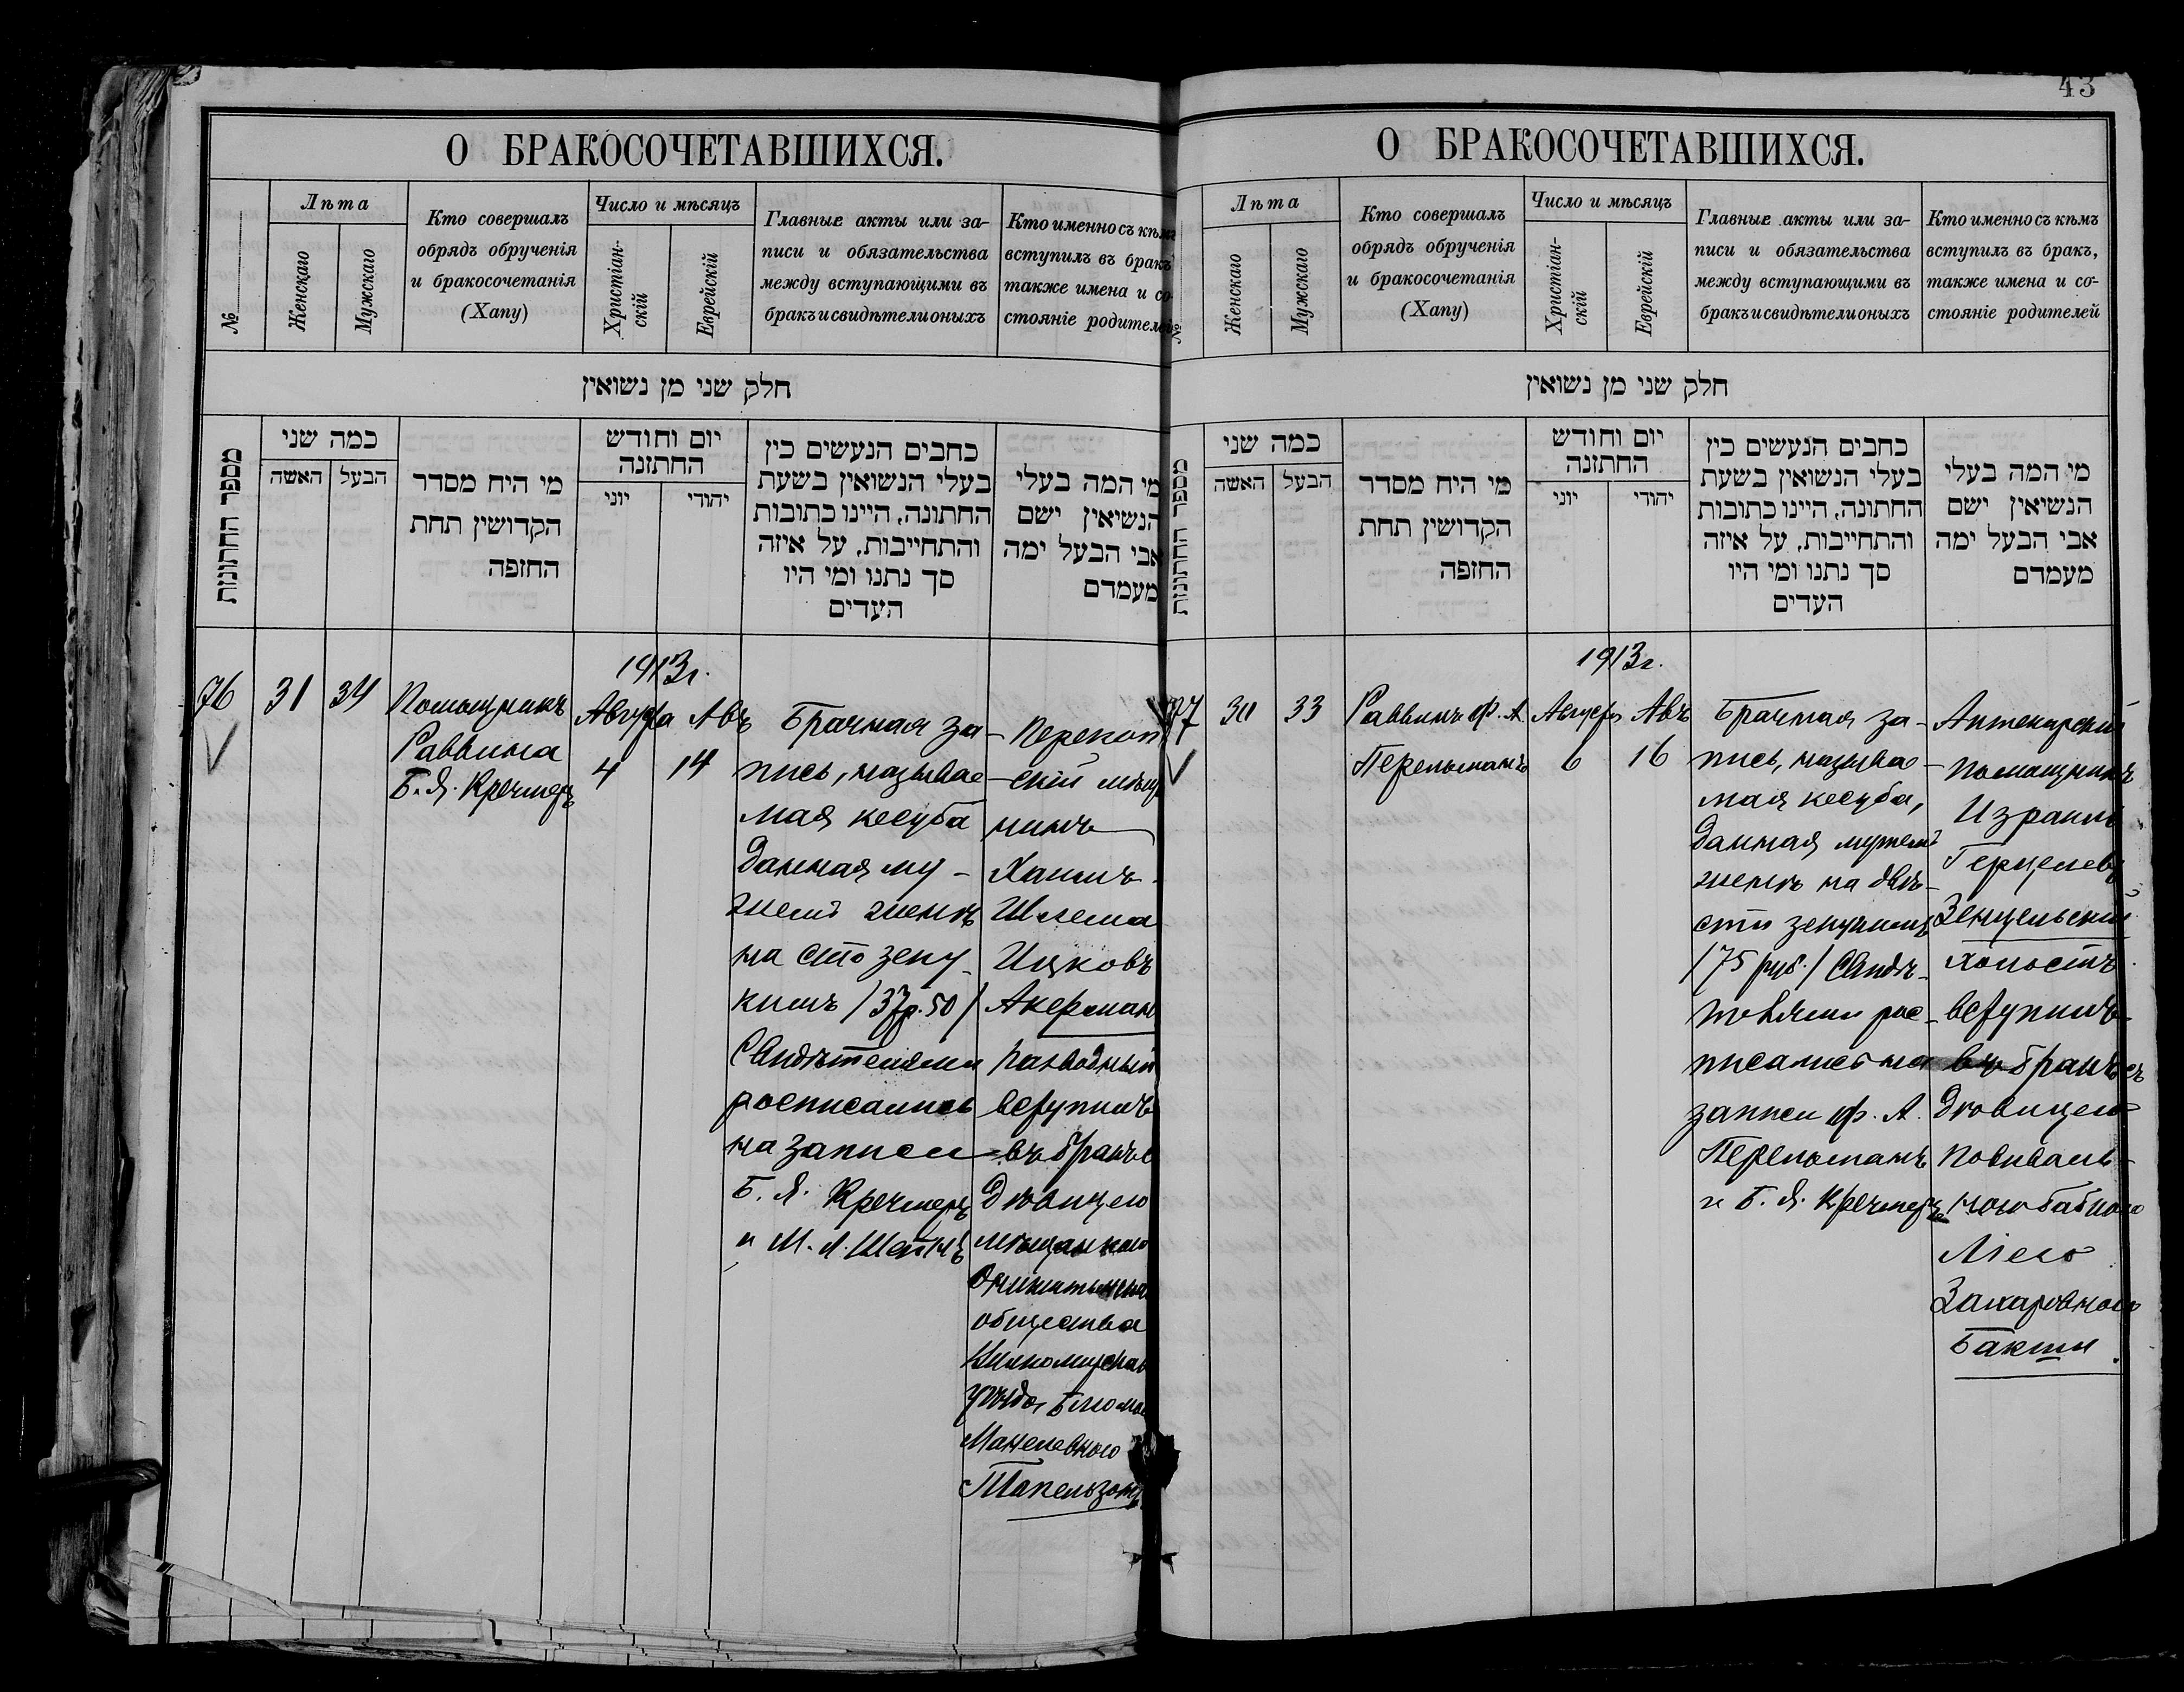 43
О БРАКОСОЧЕТАВШИХСЯ.
№
Лѣта
Женскаго
Мужскаго
Кто совершалъ
обрядъ обрученія
и бракосочетанія
(Хапу)
Число и мѣсяцъ
Христіан-
скій
Еврейскій
Главные акты или за-
писи и обязательства
между вступающими въ
бракъ и свидѣтели оныхъ
Кто именно съ кѣмъ
вступилъ въ бракъ
также имена и со-
стояніе родителей
חלק שני מן נשואין
מספר החתונות
כמה שני
האשה
הבעל
מי היח מסדר
הקדושין תחת
החופה
יום וחודש
החתונה
יוני
יהודי
כחבים הנעשים כין
בעלי הנשואין בשעת
החתונה, היינו כתובות
והתחייבות, על איזה
סך נתנו ומי היו
העדים
מי המה בעלי
הנשיאין ישם
אבי הבעל ימה
מעמדם
1913г.
76
31
34
Помощникъ
Раввина
Б. Я. Кречмеръ
Августа
4
Авъ
14
Брачная за-
пись, называе-
мая кесуба
данная му-
жемъ женѣ
на сто зеку-
кимъ /37р.50/
Свидѣтелями
росписались
на записи
Б. Я. Кречмеръ
и М. Л. Шейнъ
Перекоп
скій мѣща
нинъ
Хаимъ-
Шлема
Ицковъ
Акерманъ
разводный
вступилъ
въ бракъ с
дѣвицею
мѣщанкою
общества
Вилкомирскаго
уѣзда Блюмою
Манелевною
Тапельзонъ
О БРАКОСОЧЕТАВШИХСЯ.
№
Лѣта
Женскаго
Мужскаго
Кто совершалъ
обрядъ обрученія
и бракосочетанія
(Хапу)
Число и мѣсяцъ
Христіан-
скій
Еврейскій
Главные акты или за-
писи и обязательства
между вступающими въ
бракъ и свидѣтели оныхъ
Кто именно съ кѣмъ
вступилъ въ бракъ,
также имена и со-
стояніе родителей
חלק שני מן נשואין
מספר החתונות
כמה שני
האשה
הבעל
מי היח מסדר
הקדושין תחת
החופה
יום וחודש
החתונה
יוני
יהודי
כחבים הנעשים כין
בעלי הנשואין בשעת
החתונה, היינו כתובות
והתחייבות, על איזה
סך נתנו ומי היו
העדים
מי המה בעלי
הנשיאין ישם
אבי הבעל ימה
מעמדם
1913г.
77
30
33
Раввинъ Ф. А.
Перельманъ
Августа
6
Авъ
16
Брачная за-
пись, называе-
мая кесуба,
данная мужемъ
женѣ на двѣ-
сти зекукимъ
/75 руб./ Свидѣ-
телями рос-
писались на
записи Ф. А.
Перельманъ
и Б. Я. Кречмеръ
Аптекарскій
помощникъ
Израиль
Герцелевъ
Зенцельскій
холостъ
вступилъ
въ бракъ съ
дѣвицею
повиваль-
ною бабкою
Ліею
Захаровною
Бакши.